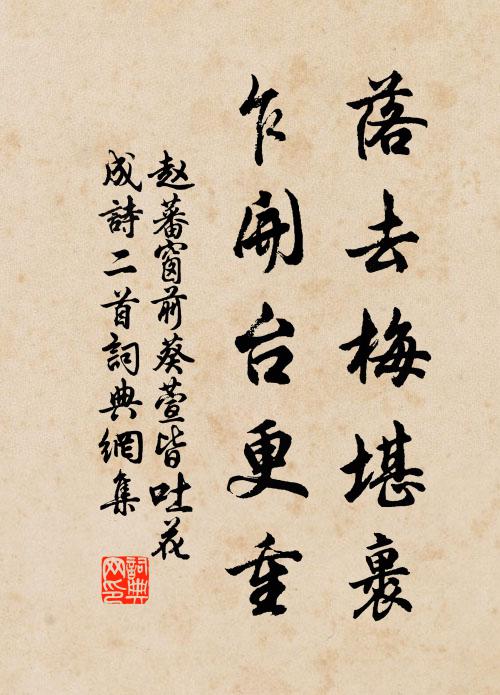 落去梅堪裹
乍開台更重
赵蕃窗前葵萱皆吐花
成詩二首詞典網集
詞典
网印